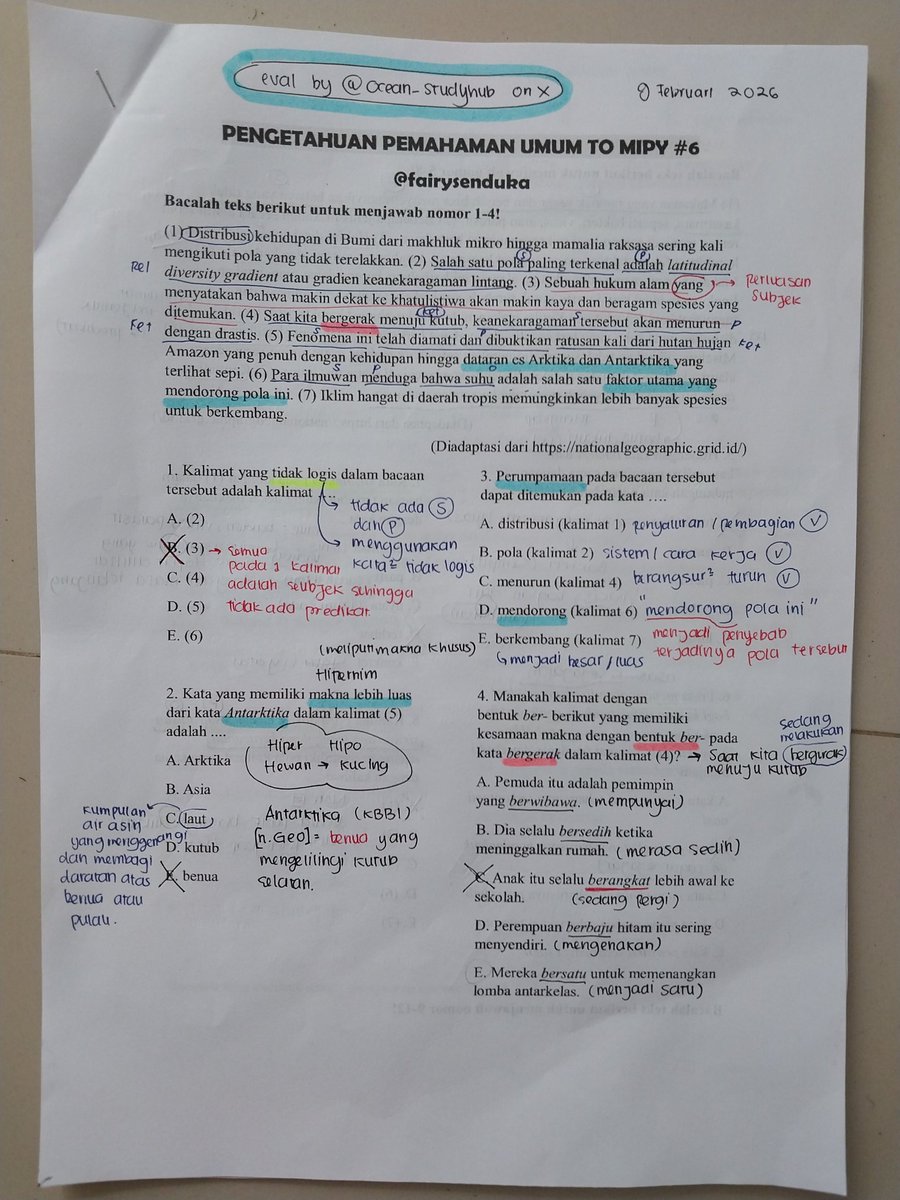 eval by @ocean-studyhub on X
8 Februari 2026
PENGETAHUAN PEMAHAMAN UMUM TO MIPY #6
@fairysenduka
Bacalah teks berikut untuk menjawab nomor 1-4!
(1) Distribusi kehidupan di Bumi dari makhluk mikro hingga mamalia raksasa sering kali
mengikuti pola yang tidak terelakkan. (2) Salah satu pola paling terkenal adalah latitudinal
S P
Pel
diversity gradient atau gradien keanekaragaman lintang. (3) Sebuah hukum alam yang
→ perluasan subjek
menyatakan bahwa makin dekat ke khatulistiwa akan makin kaya dan beragam spesies yang
ditemukan. (4) Saat kita bergerak menuju kutub, keanekaragaman tersebut akan menurun
ket S P
Ket
dengan drastis. (5) Fenomena ini telah diamati dan dibuktikan ratusan kali dari hutan hujan
S P Ket
Amazon yang penuh dengan kehidupan hingga dataran es Arktika dan Antarktika yang
terlihat sepi. (6) Para ilmuwan menduga bahwa suhu adalah salah satu faktor utama yang
S P O
mendorong pola ini. (7) Iklim hangat di daerah tropis memungkinkan lebih banyak spesies
untuk berkembang.
(Diadaptasi dari https://nationalgeographic.grid.id/)
1. Kalimat yang tidak logis dalam bacaan
tersebut adalah kalimat ....
→ tidak ada S
dan P
→ menggunakan
kata² tidak logis
A. (2)
B. (3) → semua
pada 1 kalimat
C. (4)
adalah seubjek sehingga
D. (5)
tidak ada predikat.
E. (6)
(meliputi makna khusus)
Hipernim
2. Kata yang memiliki makna lebih luas
dari kata Antarktika dalam kalimat (5)
adalah ....
Hiper Hipo
Hewan → Kucing
A. Arktika
B. Asia
C. laut
D. kutub
E. benua
kumpulan
air asin
yang menggenangi
dan membagi
daratan atas
benua atau
pulau.
Antarktika (KBBI)
[n.Geo] = benua yang
mengelilingi kutub
selatan.
3. Perumpamaan pada bacaan tersebut
dapat ditemukan pada kata ....
A. distribusi (kalimat 1) penyaluran / pembagian V
B. pola (kalimat 2) sistem / cara kerja V
C. menurun (kalimat 4) berangsur² turun V
D. mendorong (kalimat 6) "mendorong pola ini"
menjadi penyebab
terjadinya pola tersebut
E. berkembang (kalimat 7)
↳ menjadi besar / luas
4. Manakah kalimat dengan
bentuk ber- berikut yang memiliki
kesamaan makna dengan bentuk ber- pada
kata bergerak dalam kalimat (4)? → Saat kita bergerak
menuju kutub
sedang
melakukan
A. Pemuda itu adalah pemimpin
yang berwibawa. (mempunyai)
B. Dia selalu bersedih ketika
meninggalkan rumah. (merasa sedih)
C. Anak itu selalu berangkat lebih awal ke
sekolah. (sedang pergi)
D. Perempuan berbaju hitam itu sering
menyendiri. (mengenakan)
E. Mereka bersatu untuk memenangkan
lomba antarkelas. (menjadi satu)